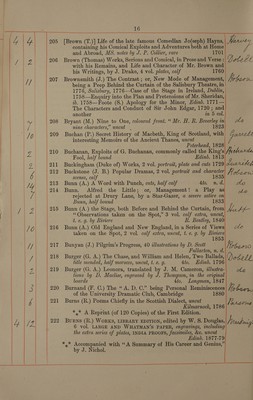 16
4 4 205 [Brown (T.)] Life of the late famous Comedian Jo(seph) Hayns,
containing his Comical Exploits and Adventures both at Home
and Abroad, MS. note by J. P. Collier, rare 1701
206 Brown (Thomas) Works, Serious and Comical, in Prose and Verse:
with his Remains, and Life and Character of Mr. Brown and
his Writings, by J. Drake, 4 vol. plates, calf 1760
207 Brownsmith (J.) The Contrast; or, New Mode of Management,
being a Peep Behind the Curtain of the Salisbury Theatre, in
1776, Salisbury, 1776—Case of the Stage in Ireland, Dublin,
1758—Enquiry into the Plan and Pretensions of Mr. Sheridan,
ib. 1758—Foote (S.) Apology for the Minor, Edinb. 1771—
The Characters and Conduct of Sir John Edgar, 1720; and
another in 5 vol.
208 Bryant (M.) Nine to One, coloured front. "Mr. H. R. Beverley in
nine characters," uncut 1825
209 Buchan (P.) Secret History of Macbeth, King of Scotland, with
Interesting Memoirs of the Ancient Thanes, uncut
Peterhead, 1828
210 Buchanan, Exploits of G. Buchanan, commonly called the King's
Fool, half bound Edinb. 1813
211 Buckingham (Duke of) Works, 2 vol. portrait, plain and calf 1729
212 Buckstone (J. B.) Popular Dramas, 2 vol. portrait and character
scenes, calf 1835
213 Bunn (A.) A Word with Punch, cuts, half calf 4to. n. d.
214 Bunn, Alfred the Little; or, Management! a Play as
rejected at Drury Lane, by a Star-Gazer, a severe satire on
Bunn, half bound 1833
215 Bunn (A.) the Stage, both Before and Behind the Curtain, from
"Observations taken on the Spot," 3 vol. calf extra, uncut,
t. e. g. by Riviere R. Bentley, 1840
216 Bunn (A.) Old England and New England, in a Series of Views
taken on the Spot, 2 vol. calf extra, uncut, t. e. g. by Riviere
1853
217 Bunyan (J.) Pilgrim's Progress, 40 illustrations by D. Scott
Fullarton, n. d.
218 Burger (G. A.) The Chase, and William and Helen, Two Ballads,
4to. Edinb. 1796
219 Burger (G. A.) Leonora, translated by J. M. Cameron,
by D. Maclise, engraved by J. Thompson, in the original
boards 4to. Longmans, 1847
220 Burnand (F. C.) The "A. D. C." being Personal Reminiscences
of the University Dramatic Club, Cambridge 1880
221 Burns (R.) Poems Chiefly in the Scottish Dialect, uncut
Kilmarnock, 1786
*** A Reprint (of 120 Copies) of the First Edition.
4 12 222 BURNS (R.) WORKS, LIBRARY EDITION, edited by W. S. Douglas,
6 vol. LARGE AND WHATMAN'S PAPER, engravings, including
the extra series of plates, INDIA PROOFS, facsimiles, &c. uncut
Edinb. 1877-79
*** Accompanied with "A Summary of His Career and Genius,"
by J. Nichol.